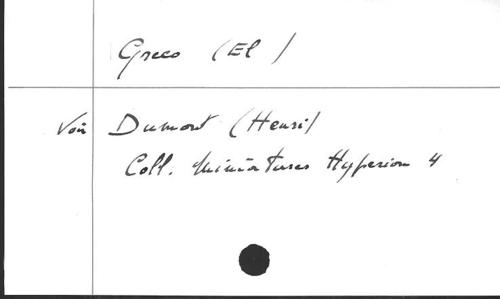 Greco (El)
Voir Dumont (Henri)
Coll. Miniatures Hyperion 4